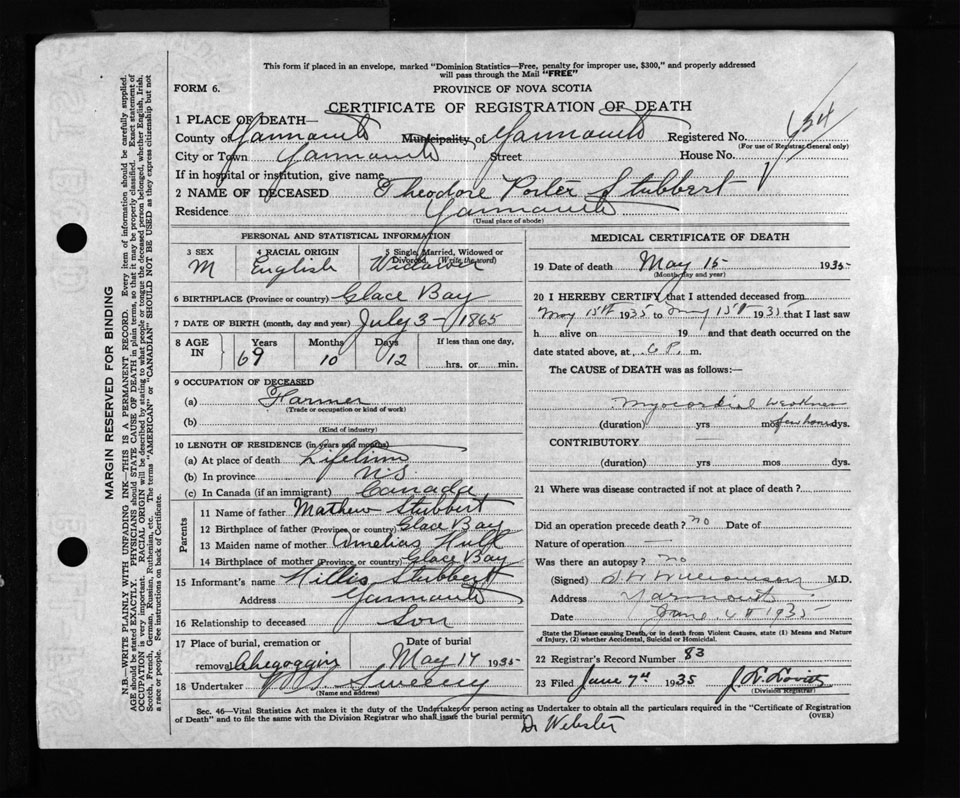 This form if placed in an envelope, marked "Dominion Statistics—Free, penalty for improper use, $300," and properly addressed
will pass through the Mail "FREE"
FORM 6.
PROVINCE OF NOVA SCOTIA
CERTIFICATE OF REGISTRATION OF DEATH
1 PLACE OF DEATH—
County of Yarmouth Municipality of Yarmouth Registered No. 634
(For use of Registrar General only)
City or Town Yarmouth Street House No.
If in hospital or institution, give name
2 NAME OF DECEASED Theodore Porter Stubbert
Residence Yarmouth
(Usual place of abode)
PERSONAL AND STATISTICAL INFORMATION
3 SEX 4 RACIAL ORIGIN 5 Single, Married, Widowed or
Divorced, (Write the word)
M English Widower
6 BIRTHPLACE (Province or country) Glace Bay
7 DATE OF BIRTH (month, day and year) July 3 - 1865
8 AGE IN Years Months Days If less than one day,
69 10 12 hrs. or min.
9 OCCUPATION OF DECEASED
(a) Farmer
(Trade or occupation or kind of work)
(b)
(Kind of industry)
10 LENGTH OF RESIDENCE (in years and months)
(a) At place of death Lifetime
(b) In province N.S.
(c) In Canada (if an immigrant) Canada
Parents
11 Name of father Mathew Stubbert
12 Birthplace of father (Province or country) Glace Bay
13 Maiden name of mother Amelias
14 Birthplace of mother (Province or country) Glace Bay
15 Informant's name Willis Stubbert
Address Yarmouth
16 Relationship to deceased Son
17 Place of burial, cremation or Date of burial
removal Chegoggin May 17 1935
18 Undertaker Sweeny
(Name and address)
MEDICAL CERTIFICATE OF DEATH
19 Date of death May 15 1935
(Month, day and year)
20 I HEREBY CERTIFY that I attended deceased from
May 15th 1935 to May 15th 1935 that I last saw
h alive on 19 and that death occurred on
date stated above, at 6 P. m.
The CAUSE of DEATH was as follows:—
Myocardial weakness
(duration) yrs mos few hours dys.
CONTRIBUTORY —
(duration) yrs mos dys.
21 Where was disease contracted if not at place of death?
Did an operation precede death? no Date of
Nature of operation —
Was there an autopsy? no
(Signed) Williamson M.D.
Address Yarmouth
Date June 4th 1935
State the Disease causing Death, or in death from Violent Causes, state (1) Means and Nature
of Injury, (2) whether Accidental, Suicidal or Homicidal.
22 Registrar's Record Number 83
23 Filed June 7th 1935
(Division Registrar)
Sec. 46—Vital Statistics Act makes it the duty of the Undertaker or person acting as Undertaker to obtain all the particulars required in the "Certificate of Registration
of Death" and to file the same with the Division Registrar who shall issue the burial permit.
(OVER)
Dr Webster
MARGIN RESERVED FOR BINDING
N.B—WRITE PLAINLY WITH UNFADING INK—THIS IS A PERMANENT RECORD. Every item of information should be carefully supplied.
AGE should be stated EXACTLY. PHYSICIANS should STATE CAUSE OF DEATH in plain terms, so that it may be properly classified. Exact statement of
OCCUPATION is very important. RACIAL ORIGIN will be described by stating to what people or tongue the deceased person belonged, whether English, Irish,
Scotch, French, German, Russian, Ruthenian, etc. The terms "AMERICAN" or "CANADIAN" SHOULD NOT BE USED as they express citizenship but not
a race or people. See instructions on back of Certificate.